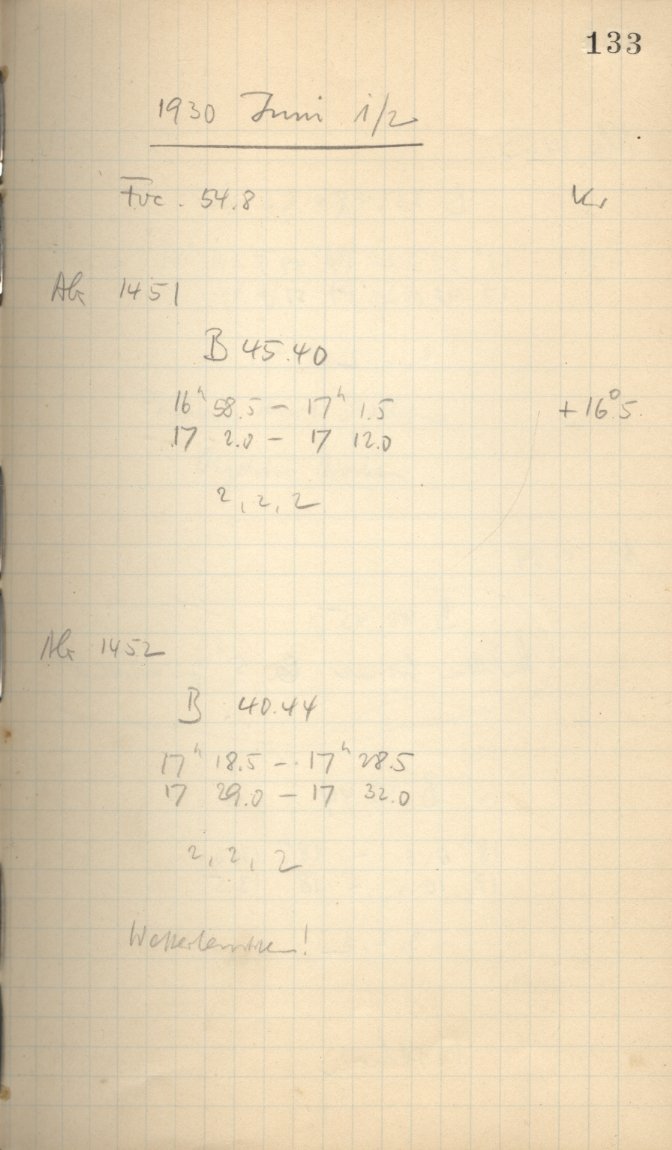 133
1930 Juni 1/2
Foc. 54.8 Kr
AG 1451
B 45.40
16ʰ 58.5 – 17ʰ 1.5 +16°5
17 2.0 – 17 12.0
2, 2, 2
AG 1452
B 40.44
17ʰ 18.5 – 17ʰ 28.5
17 29.0 – 17 32.0
2, 2, 2
Wetterleuchten!